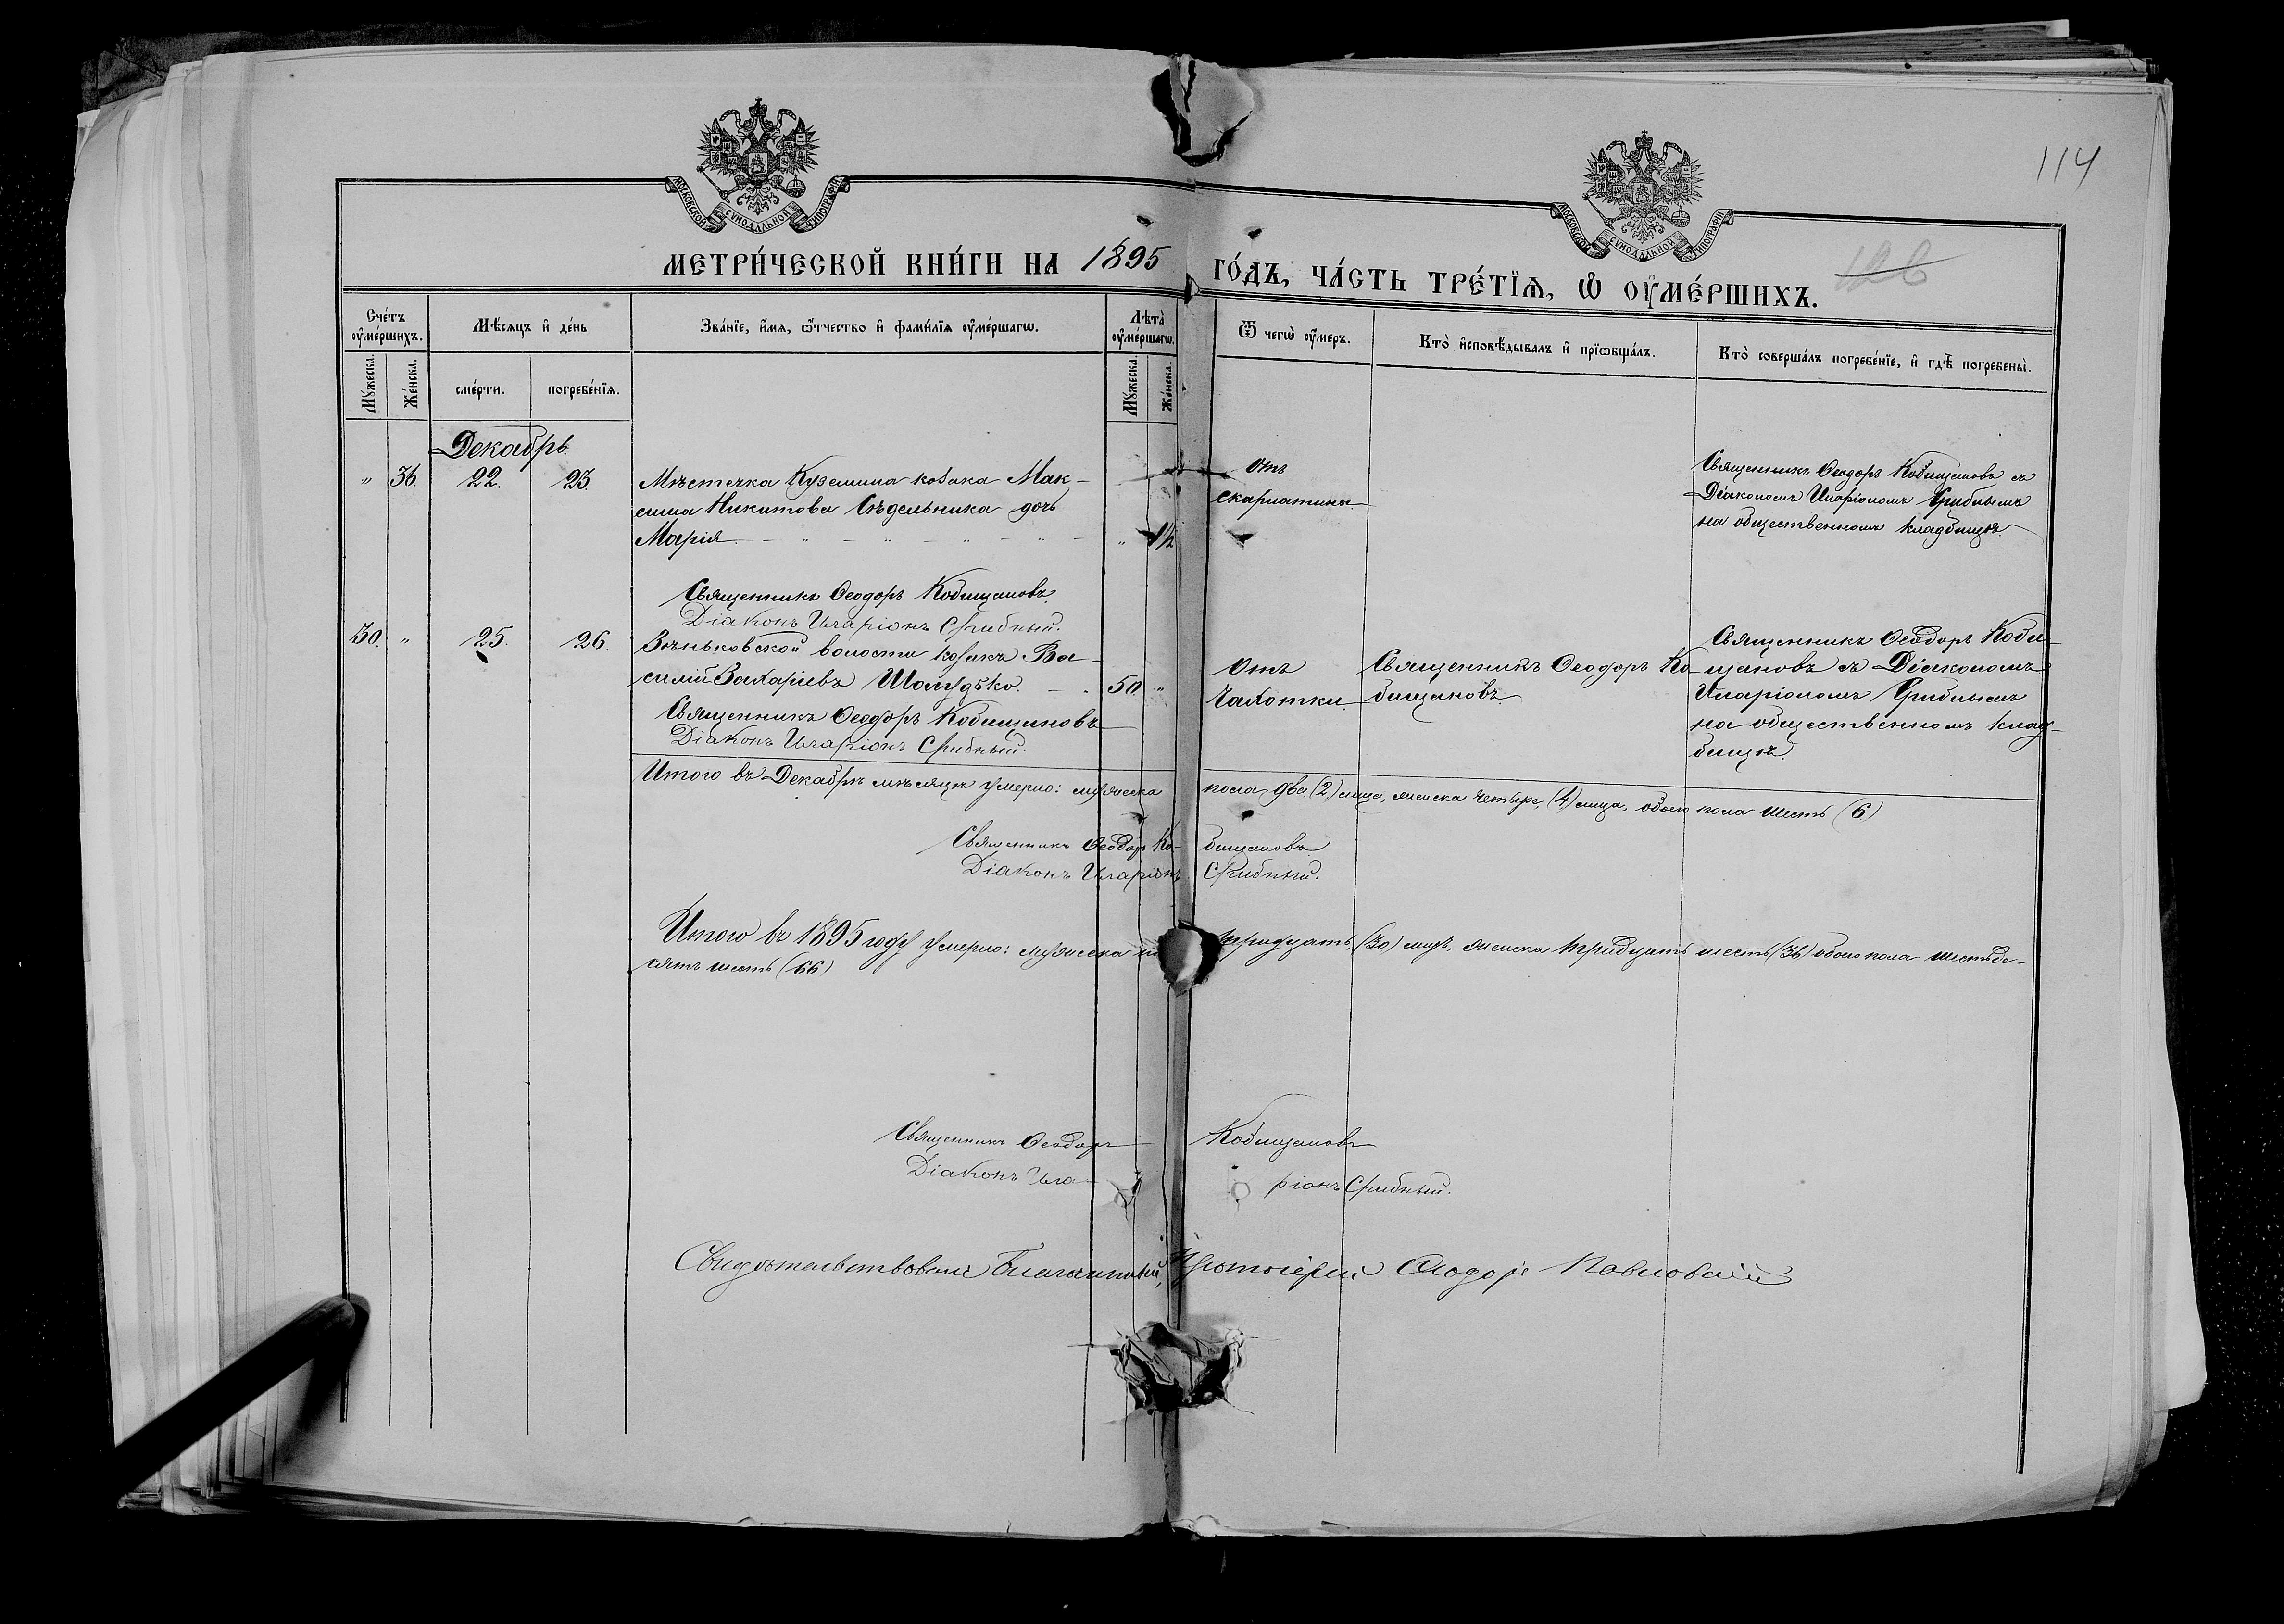 114
МОСКОВСКОЙ СУНОДАЛЬНОЙ ТИПОГРАФІИ
МОСКОВСКОЙ СУНОДАЛЬНОЙ ТИПОГРАФІИ
126
МЕТРИ́ЧЕСКОЙ КНИ́ГИ НА 1895 ГО́ДЪ, ЧА́СТЬ ТРЕ́ТЇѦ, Ѡ ОУ҆МЕ́РШИХЪ.
Сче́тъ оу҆ме́ршихъ.
Мѣ́сѧцъ и҆ де́нь
Зва́нїе, и҆́мѧ, ѻ҆́тчество и҆ фами́лїѧ оу҆ме́ршагѡ.
Лѣта̀ оу҆ме́ршагѡ.
Ѿ чегѡ̀ оу҆́меръ.
Кто̀ и҆сповѣ́дывалъ и҆ прїѡбща́лъ.
Кто̀ соверша́лъ погребе́нїе, и҆ гдѣ̀ погребены̀.
Мꙋ́жеска.
Же́нска.
сме́рти.
погребе́нїѧ.
Мꙋ́жеска.
Же́нска.
Декабрь
" 36. 22. 23.
Мѣстечка Куземина козака Мак-
сима Никитова Сѣдельника дочь
Марія - " - " - " - " - " 1/2
Отъ
скарлатины
Священникъ Ѳеодоръ Кобищановъ съ
Діакономъ Иларіономъ Срибнымъ
на общественномъ кладбищѣ.
Священникъ Ѳеодоръ Кобищановъ.
Діаконъ Иларіонъ Срибный.
30. " 25. 26.
Зѣньковской волости козакъ Ва-
силій Захаріевъ Шолудько. - . 50 "
Отъ
Чахотки
Священникъ Ѳеодоръ Ко-
бищановъ.
Священникъ Ѳеодоръ Коби-
щановъ съ Діакономъ
Иларіономъ Срибнымъ
на общественномъ клад-
бищѣ.
Священникъ Ѳеодоръ Кобищановъ
Діаконъ Иларіонъ Срибный.
Итого въ Декабрѣ мѣсяцѣ умерло: мужеска пола два (2) лица, женска четыре (4) лица, обоего пола шесть (6)
Священникъ Ѳеодоръ Ко- бищановъ
Діаконъ Иларіонъ Срибный.
Итого въ 1895 году умерло: мужеска тридцать (30) лицъ, женска тридцать шесть (36) обоего пола шестьде-
сятъ шесть (66)
Священникъ Ѳеодоръ Кобищановъ
Діаконъ Ила- ріонъ Срибный.
Свидѣтельствовалъ Благочинный, Протоіерей Ѳеодоръ Павловскій